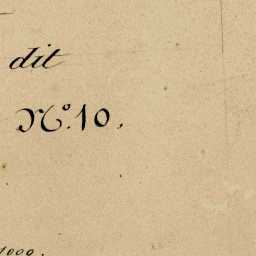 dit
Nº. 10.
1000.